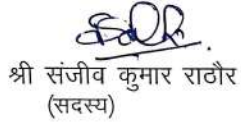 श्री संजीव कुमार राठौर
(सदस्य)